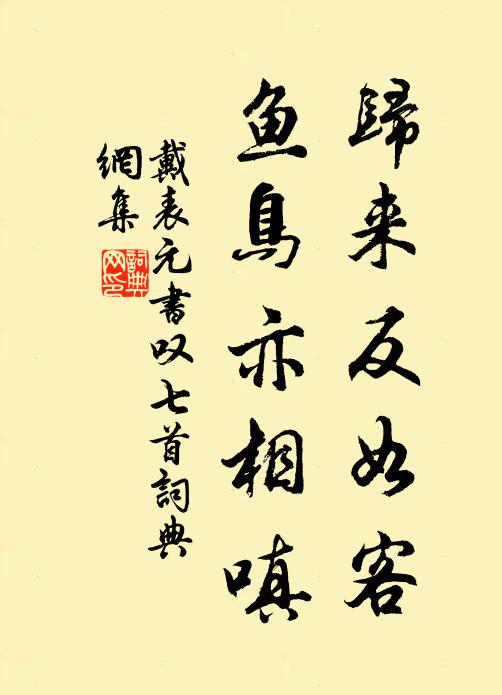 歸来反如客
鱼鳥亦相嗔
戴表元書叹七首詞典
網集
詞典
网印